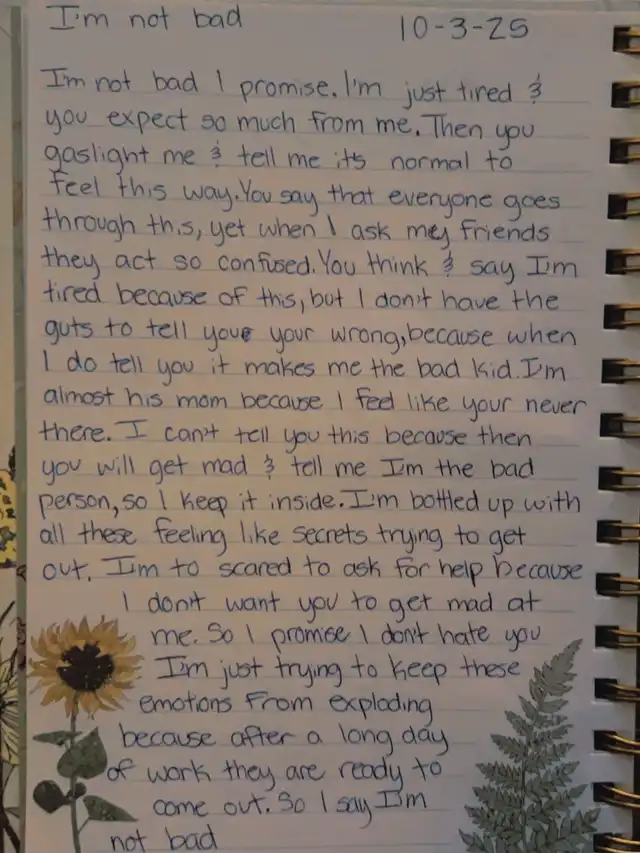 I'm not bad 10-3-25
I'm not bad I promise. I'm just tired &
you expect so much from me. Then you
gaslight me & tell me its normal to
feel this way. You say that everyone goes
through this, yet when I ask my friends
they act so confused. You think & say I'm
tired because of this, but I don't have the
guts to tell you your wrong, because when
I do tell you it makes me the bad kid. I'm
almost his mom because I feel like your never
there. I can't tell you this because then
you will get mad & tell me I'm the bad
person, so I keep it inside. I'm bottled up with
all these feeling like secrets trying to get
out. I'm to scared to ask for help because
I don't want you to get mad at
me. So I promise I don't hate you
I'm just trying to keep these
emotions from exploding
because after a long day
of work they are ready to
come out. So I say I'm
not bad